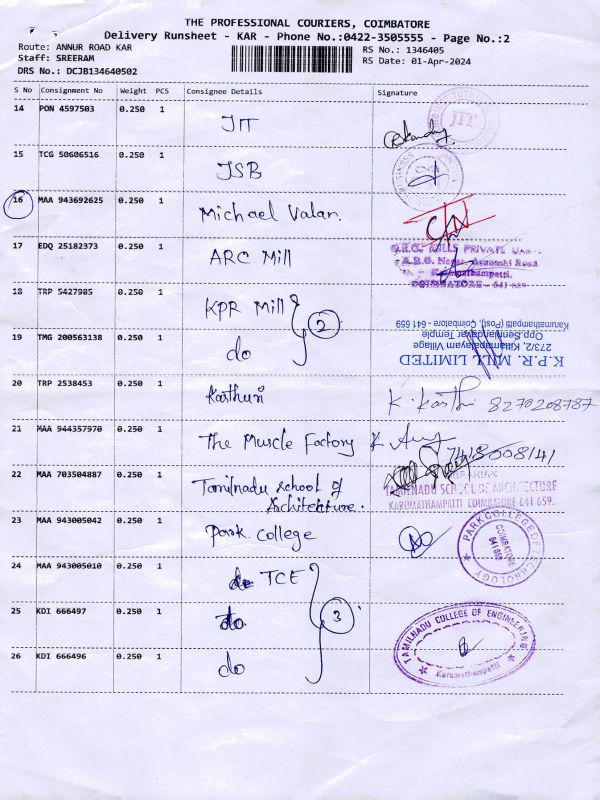 THE PROFESSIONAL COURIERS, COIMBATORE
Delivery Runsheet - KAR - Phone No.:0422-3505555 - Page No.:2
Route: ANNUR ROAD KAR
RS No.: 1346405
Staff: SREERAM
RS Date: 01-Apr-2024
DRS No.: DCJB134640502
S No Consignment No Weight PCS Consignee Details Signature
14 PON 4597503 0.250 1 JIT
JIT
15 TCG 50606516 0.250 1 JSB
16 MAA 943692625 0.250 1 Michael Valan.
17 EDQ 25182373 0.250 1 ARC Mill
MILLS PRIVATE
Karumathampatti.
COIMBATORE - 641 659
18 TRP 5427985 0.250 1 KPR Mill
2
19 TMG 200563138 0.250 1 do
K.P.R. MILL LIMITED
273/2, Kittampalayam Village
Opp.Sennyandavar Temple
Karumathampatti (Post), Coimbatore - 641 659
20 TRP 2538453 0.250 1 Karthuri
K. Karthi 8270208787
21 MAA 944357970 0.250 1 The Muscle Factory
22 MAA 703504887 0.250 1 Tamilnadu School of
Architecture.
LIBRARIAN
TAMILNADU SCHOOL OF ARCHITECTURE
KARUMATHAMPATTI COIMBATORE 641 659.
23 MAA 943005042 0.250 1 Park. College
PARK COLLEGE OF TECHNOLOGY
COIMBATORE
641 659
24 MAA 943005010 0.250 1 do TCE
25 KDI 666497 0.250 1 do
3
TAMILNADU COLLEGE OF ENGINEERING
Karumathampatti
26 KDI 666496 0.250 1 do